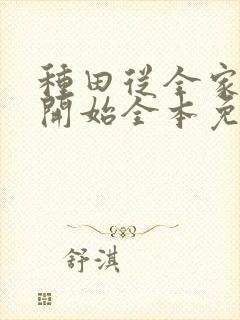 種田從全家
開始全本免
舒淇